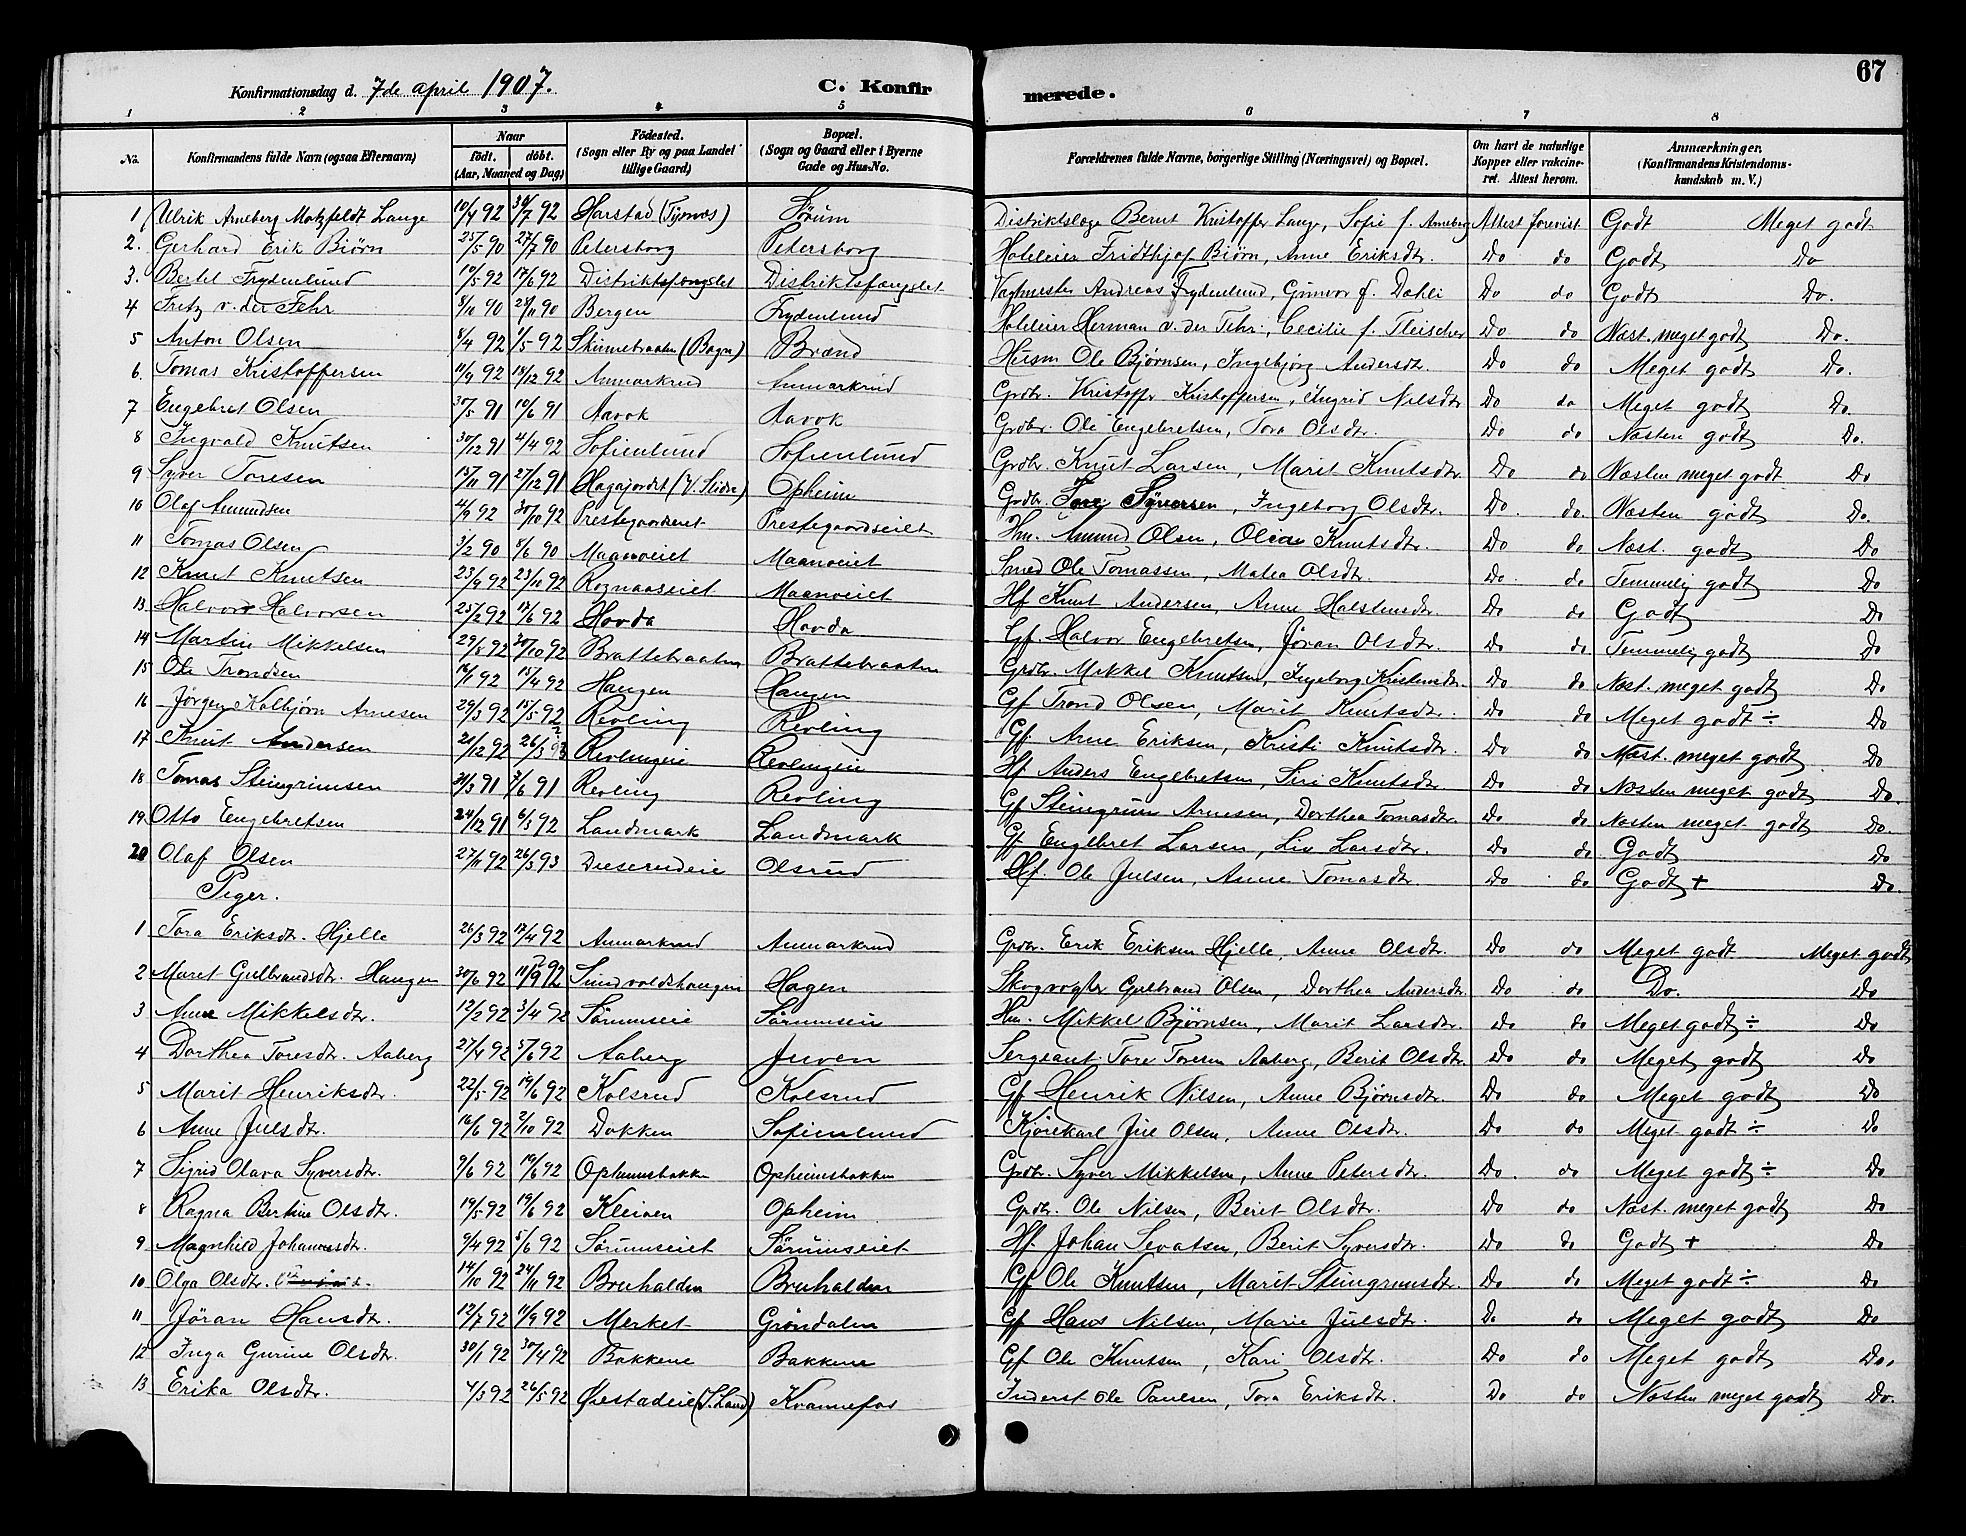 67
Konfirmationsdag d. 7de april 1907. C. Konfirmerede.
1 2 3 4 5 6 7 8
No. Konfirmandens fulde Navn (ogsaa Efternavn) Naar födt. döbt. (Aar, Maaned og Dag) Födested. (Sogn eller By og paa Landet tillige Gaard) Bopæl. (Sogn og Gaard eller i Byerne Gade og Hus-No. Forældrenes fulde Navne, borgerlige Stilling (Næringsvei) og Bopæl. Om havt de naturlige Kopper eller vakcineret. Attest herom. Anmærkninger. (Konfirmandens Kristendomskundskab m. V.)
1 Ulrik Arneberg Motzfeldt Lange 10/4 92 30/7 92 Harstad Sørum Distriktslæge Bernt Kristoffer Lange, Sofie f. Arneberg Attest forevist Godt Meget godt
2. Gerhard Erik Biörn 25/5 90 27/7 90 Petersborg Petersborg Hoteleier Fridthjof Biörn, Anne Eriksdt. Do do Godt Do
3. Bertel Frydenlund 10/5 92 17/6 92 Distriktsfængslet Distriktsfængslet Vagtmester Andreas Frydenlund, Gunvor f. Dahli Do do Godt Do.
4 Fritz v. der Fehr 8/10 90 28/11 90 Bergen Frydenlund Hoteleier Herman v. der Fehr, Cecilie f. Fleischer Do do Næst. meget godt Do.
5 Anton Olsen 8/4 92 1/5 92 Skinnebraaten (Bagn) Brænd Husm Ole Bjørnsen, Ingebjørg Andersdt. Do do Meget godt Do.
6. Tomas Kristoffersen 11/9 92 18/12 92 Anmarkrud Anmarkrud Grdbr. Kristoffer Kristoffersen, Ingrid Nilsdtr Do do Meget godt Do
7 Engebret Olsen 30/5 91 10/6 91 Aavok Aavok Grdbr. Ole Engebretsen, Tora Olsdtr. Do do Næsten godt Do.
8 Ingvald Knutsen 30/12 91 4/4 92 Sofienlund Sofienlund Grdbr. Knut Larsen, Marit Knutsdtr Do do Næsten meget godt Do
9 Syver Toresen 15/11 91 27/12 91 Hagajordet (V. Slidre) Opheim Grdbr. Tore Syversen, Ingeborg Olsdtr. Do. do. Næsten godt Do.
10 Olaf Amundsen 4/9 92 30/10 92 Prestegaardseiet Prestegaardseiet Hm. Amund Olsen, Olea Knutsdtr. Do do Næst. godt Do
11 Tomas Olsen 3/2 90 8/6 90 Maanoeiet Maanoeiet Smed Ole Tomassen, Matea Olsdt. Do. do Temmelig godt Do
12 Knut Knutsen 23/9 92 23/11 92 Rognaaseiet Maanoeiet Hf Knut Andersen, Anne Halstensdtr Do do Godt Do
13 Halvor Halvorsen 25/2 92 17/6 92 Hovda Hovda Gf Halvor Engebretsen, Jöran Olsdtr. Do do Temmelig godt Do
14 Martin Mikkelsen 29/8 92 30/10 92 Brattebraaten Brattebraaten Grdbr. Mikkel Knutsen, Ingeborg Kristensdtr. Do do Næst. meget godt Do
15 Ole Trondsen 16/1 92 15/4 92 Haugen Haugen Gf Trond Olsen, Marit Knutsdtr. Do do Meget godt ÷ Do
16 Jørgen Kolbjørn Arnesen 29/3 92 15/5 92 Revling Revling Gf. Arne Eriksen, Kristi Knutsdtr. Do do Næst. meget godt Do
17 Knut Andersen 21/12 92 26/3 93 Revlingeie Revlingeie Hf Anders Engebretsen, Siri Knutsdtr. Do do Næsten meget godt Do.
18 Tomas Steingrimsen 31/3 91 7/6 91 Revling Revling Gf Steingrim Arnesen, Dorthea Tomasdtr. Do do Næsten meget godt Do.
19. Otto Engebretsen 24/12 91 6/3 92 Landmark Landmark Gf Engebret Larsen, Liv Larsdtr. Do do Godt Do
20 Olaf Olsen 27/11 92 26/3 93 Dieserudeie Olsrud Hf. Ole Julsen, Anne Tomasdtr. Do do Godt + Do.
Piger.
1 Tora Eriksdtr. Hjelle 26/3 92 17/4 92 Anmarkrud Anmarkrud Grdbr. Erik Eriksen Hjelle, Anne Olsdtr. Do do Meget godt Meget godt
2 Maret Gulbrandsdtr. Haugen 30/6 92 11/9 92 Sundvoldshaugen Hagen Skogvogter Gulbrand Olsen, Dorthea Andersdtr. Do do Do. Do
3 Anne Mikkelsdtr. 12/2 92 3/4 92 Sørumseie Sørumseie Hm. Mikkel Bjørnsen, Marit Larsdtr. Do do Meget godt ÷ Do
4 Dorthea Toresdtr. Aaberg 27/4 92 5/6 92 Aaberg Juven Sergeant Tore Toresen Aaberg, Berit Olsdtr Do do Meget godt Do
5 Marit Henriksdtr. 22/5 92 19/6 92 Kolsrud Kolsrud Gf Henrik Nilsen, Anne Bjørnsdtr. Do do Meget godt Do
6 Anne Julsdtr. 16/6 92 2/10 92 Dokken Sofienlund Kjörekarl Jul Olsen, Anne Olsdtr. Do do Meget godt ÷ Do
7 Sigrid Olava Syversdtr. 9/6 92 19/6 92 Opheimsbakken Opheimsbakken Grdbr. Syver Mikkelsen, Anne Petersdtr. Do. do Meget godt ÷ Do
8 Ragna Bertine Olsdtr. 19/5 92 19/6 92 Kleiven Opheim Grdbr. Ole Nilsen, Berit Olsdtr. Do do Næst. meget godt Do
9 Magnhild Johannesdtr. 9/4 92 5/6 92 Sørumseiet Sørumseiet Hf. Johan Sevatsen, Berit Syversdtr. Do do Godt + Do
10 Olga Olsdtr. 14/10 92 24/11 92 Bruhalden Bruhalden Gf Ole Knutsen, Marit Steingrimsdtr. Do do Meget godt ÷ Do
11 Jöran Hansdtr. 12/7 92 11/9 92 Merket Gröndalen Gf Hans Nilsen, Marie Julsdtr. Do do Meget godt Do
12 Inga Gurine Olsdtr. 30/1 92 30/4 92 Bakkene Bakkene Gf Ole Knutsen, Kari Olsdtr. Do do Meget godt Do.
13 Erika Olsdtr. 4/3 92 26/5 92 Øiestadeie (S. Land) Kvannefos Inderst Ole Paulsen, Tora Eriksdtr. Do do Næsten meget godt Do.